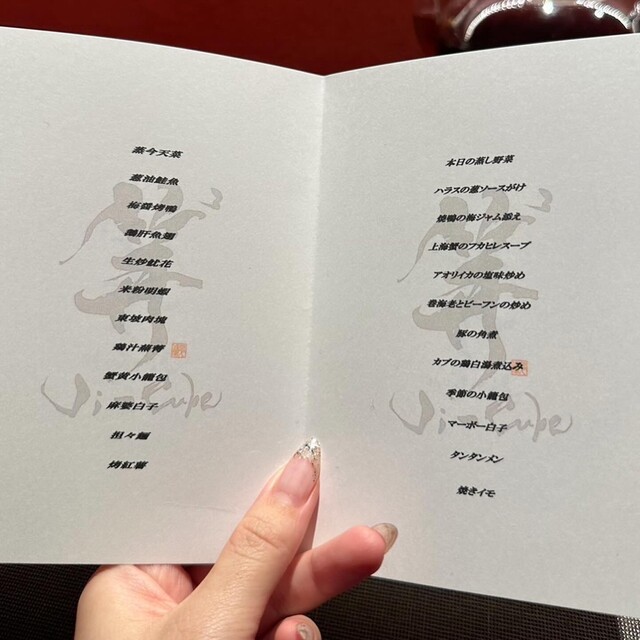 蒸今天菜
葱油鮭魚
梅醤烤鴨
鵝肝魚翅
生炒魷花
米粉明蝦
東坡肉塊
鶏汁蕪菁
蟹黄小籠包
麻婆白子
担々麺
烤紅薯
本日の蒸し野菜
ハラスの葱ソースがけ
焼鴨の梅ジャム添え
上海蟹のフカヒレスープ
アオリイカの塩味炒め
巻海老とビーフンの炒め
豚の角煮
カブの鶏白湯煮込み
季節の小籠包
マーボー白子
タンタンメン
焼きイモ